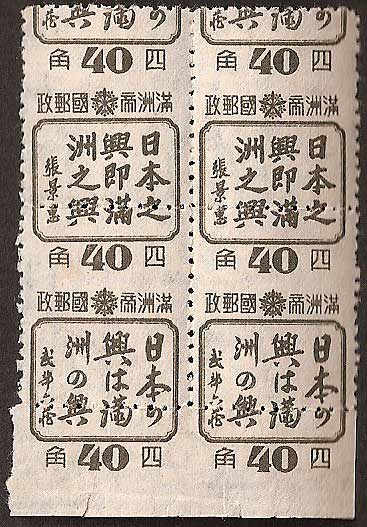 の
滿
興
四 40 角
の
滿
興
四 40 角
滿洲帝國郵政
日本之
興即滿
洲之興
張景惠
四 40 角
滿洲帝國郵政
日本之
興即滿
洲之興
張景惠
四 40 角
滿洲帝國郵政
日本の
興は滿
洲の興
武部六蔵
四 40 角
滿洲帝國郵政
日本の
興は滿
洲の興
武部六蔵
四 40 角